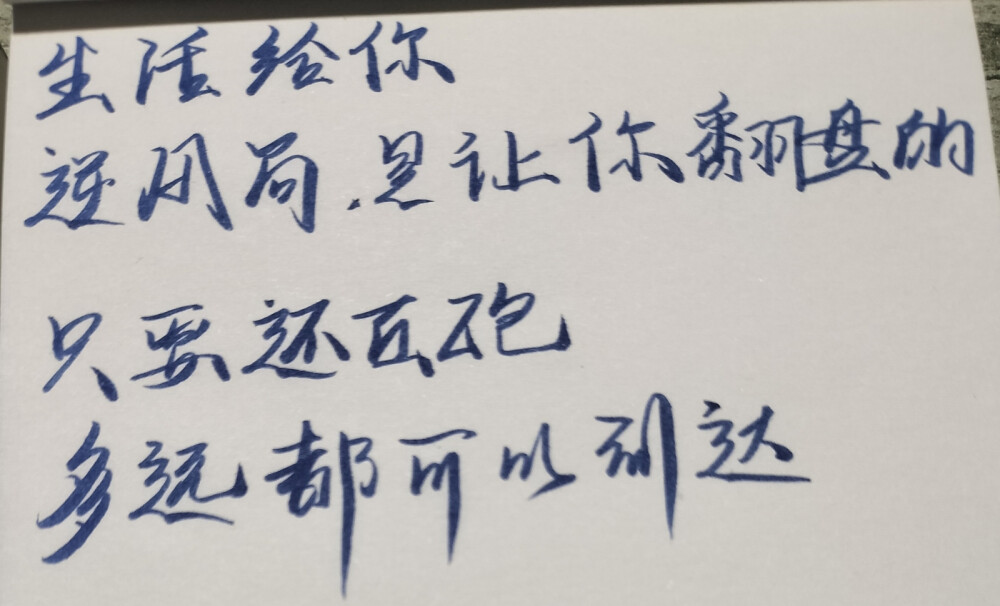 生活给你
逆风局,是让你翻盘的
只要还在跑
多远都可以到达